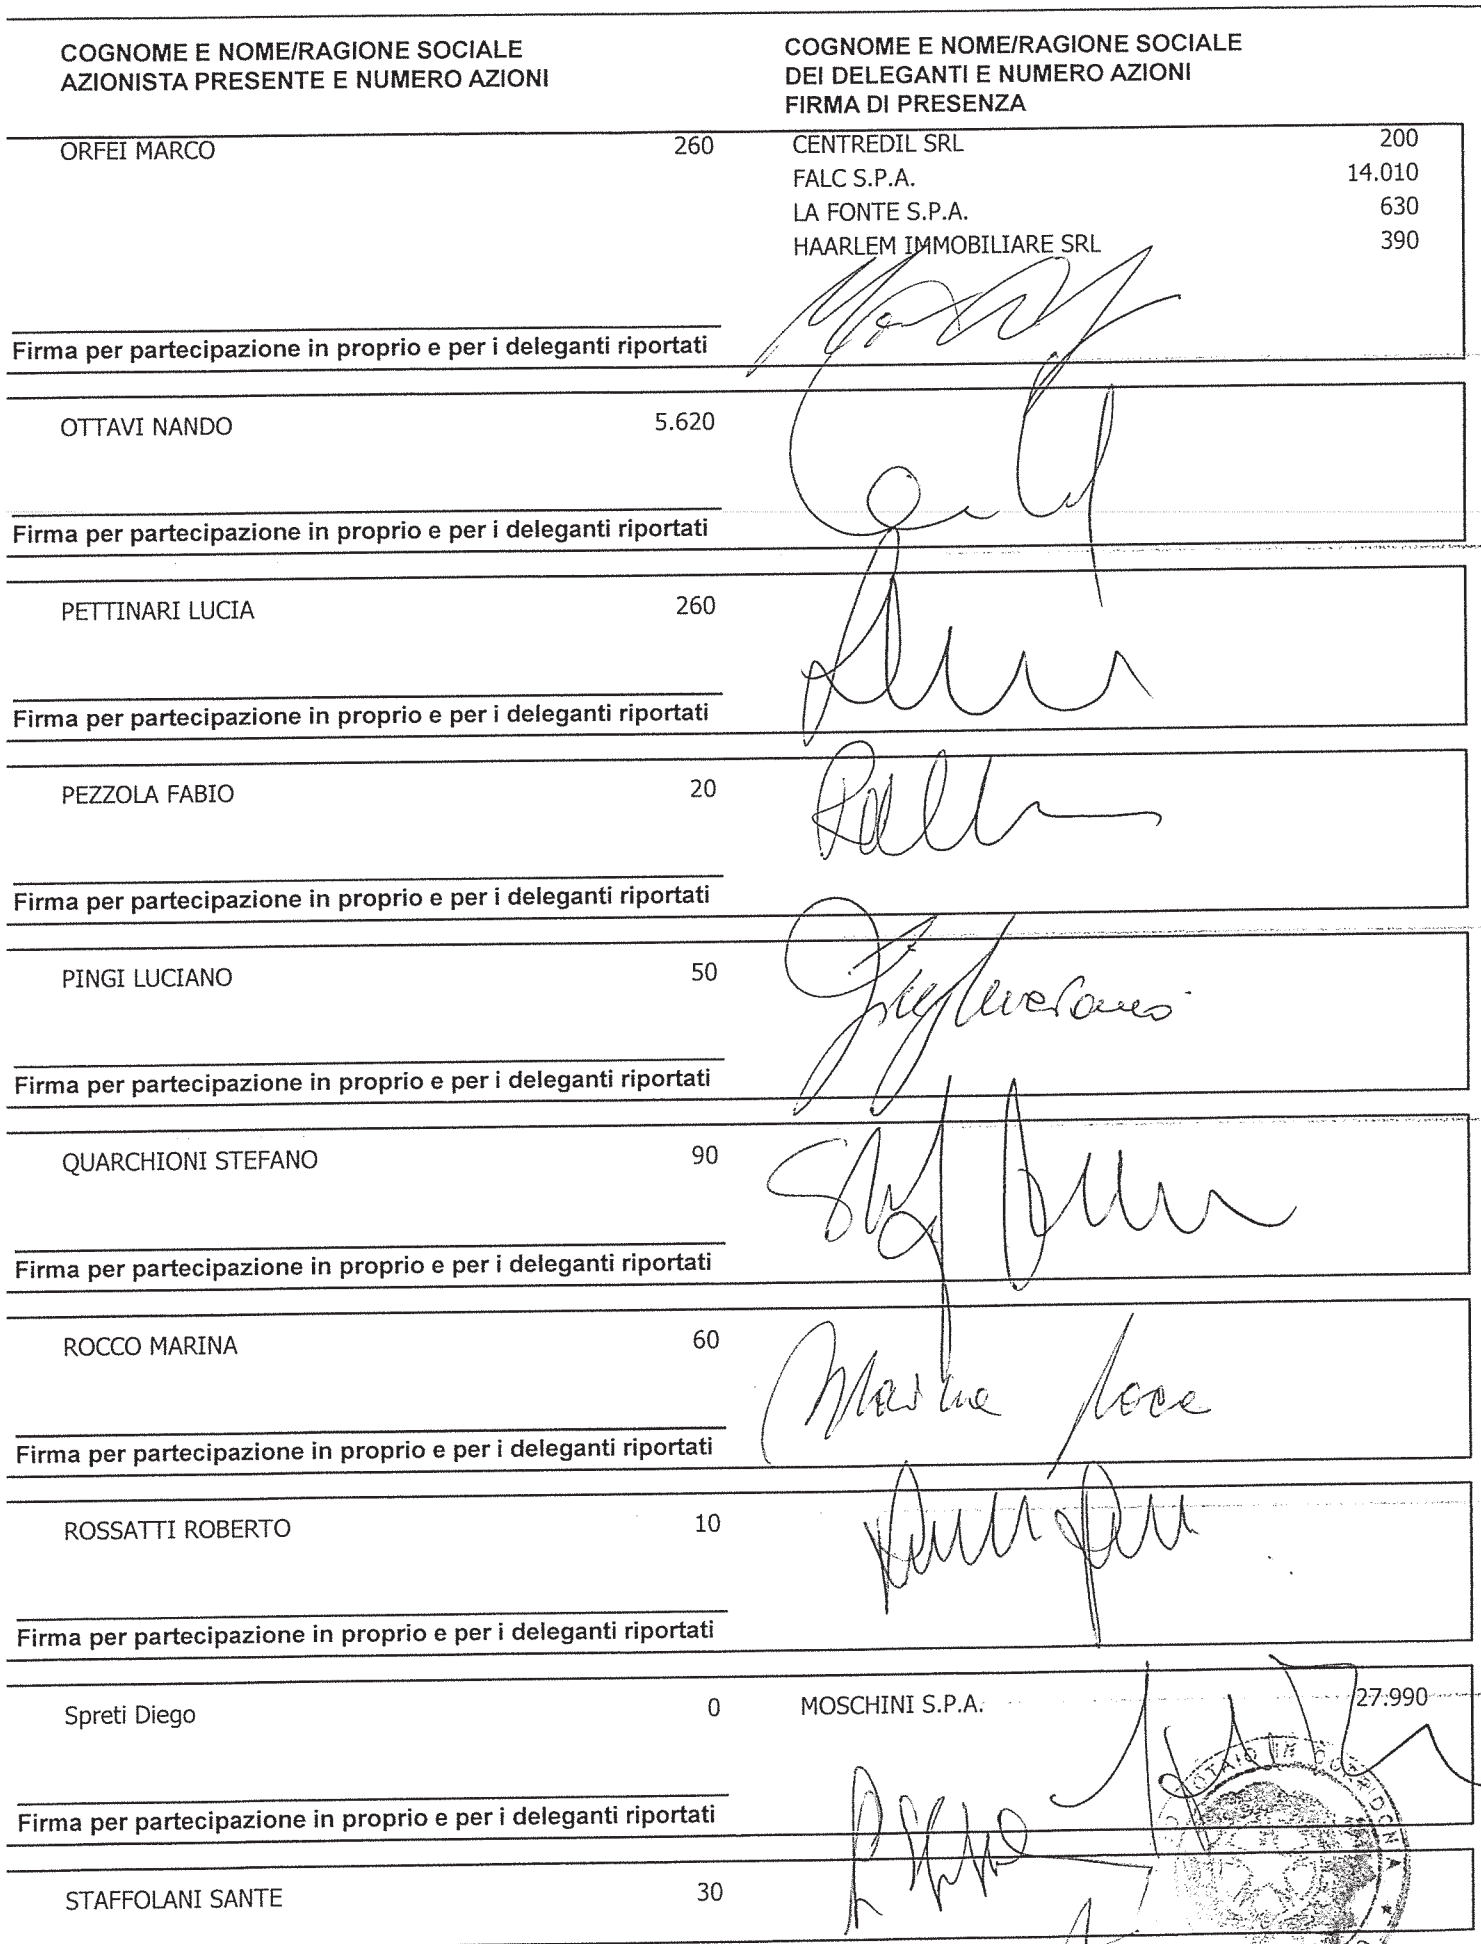 COGNOME E NOME/RAGIONE SOCIALE
AZIONISTA PRESENTE E NUMERO AZIONI
COGNOME E NOME/RAGIONE SOCIALE
DEI DELEGANTI E NUMERO AZIONI
FIRMA DI PRESENZA
ORFEI MARCO 260
CENTREDIL SRL 200
FALC S.P.A. 14.010
LA FONTE S.P.A. 630
HAARLEM IMMOBILIARE SRL 390
Firma per partecipazione in proprio e per i deleganti riportati
OTTAVI NANDO 5.620
Firma per partecipazione in proprio e per i deleganti riportati
PETTINARI LUCIA 260
Firma per partecipazione in proprio e per i deleganti riportati
PEZZOLA FABIO 20
Firma per partecipazione in proprio e per i deleganti riportati
PINGI LUCIANO 50
Firma per partecipazione in proprio e per i deleganti riportati
QUARCHIONI STEFANO 90
Firma per partecipazione in proprio e per i deleganti riportati
ROCCO MARINA 60
Marina Rocco
Firma per partecipazione in proprio e per i deleganti riportati
ROSSATTI ROBERTO 10
Firma per partecipazione in proprio e per i deleganti riportati
Spreti Diego 0 MOSCHINI S.P.A. 27.990
Firma per partecipazione in proprio e per i deleganti riportati
STAFFOLANI SANTE 30